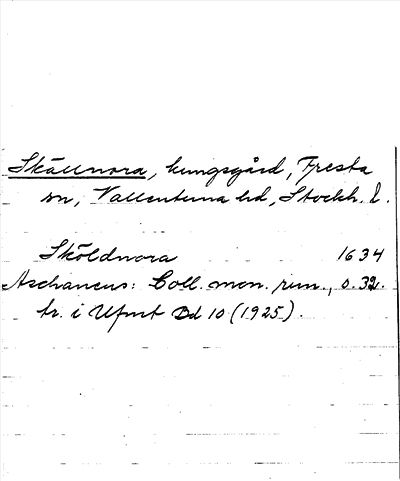 Skällnora, kungsgård, Fresta
sn, Vallentuna hd, Stockh. l.
Sköldnora 1634
Aschaneus: Coll. mon. run., o. 32.
tr. i Ufmt Bd 10 (1925).